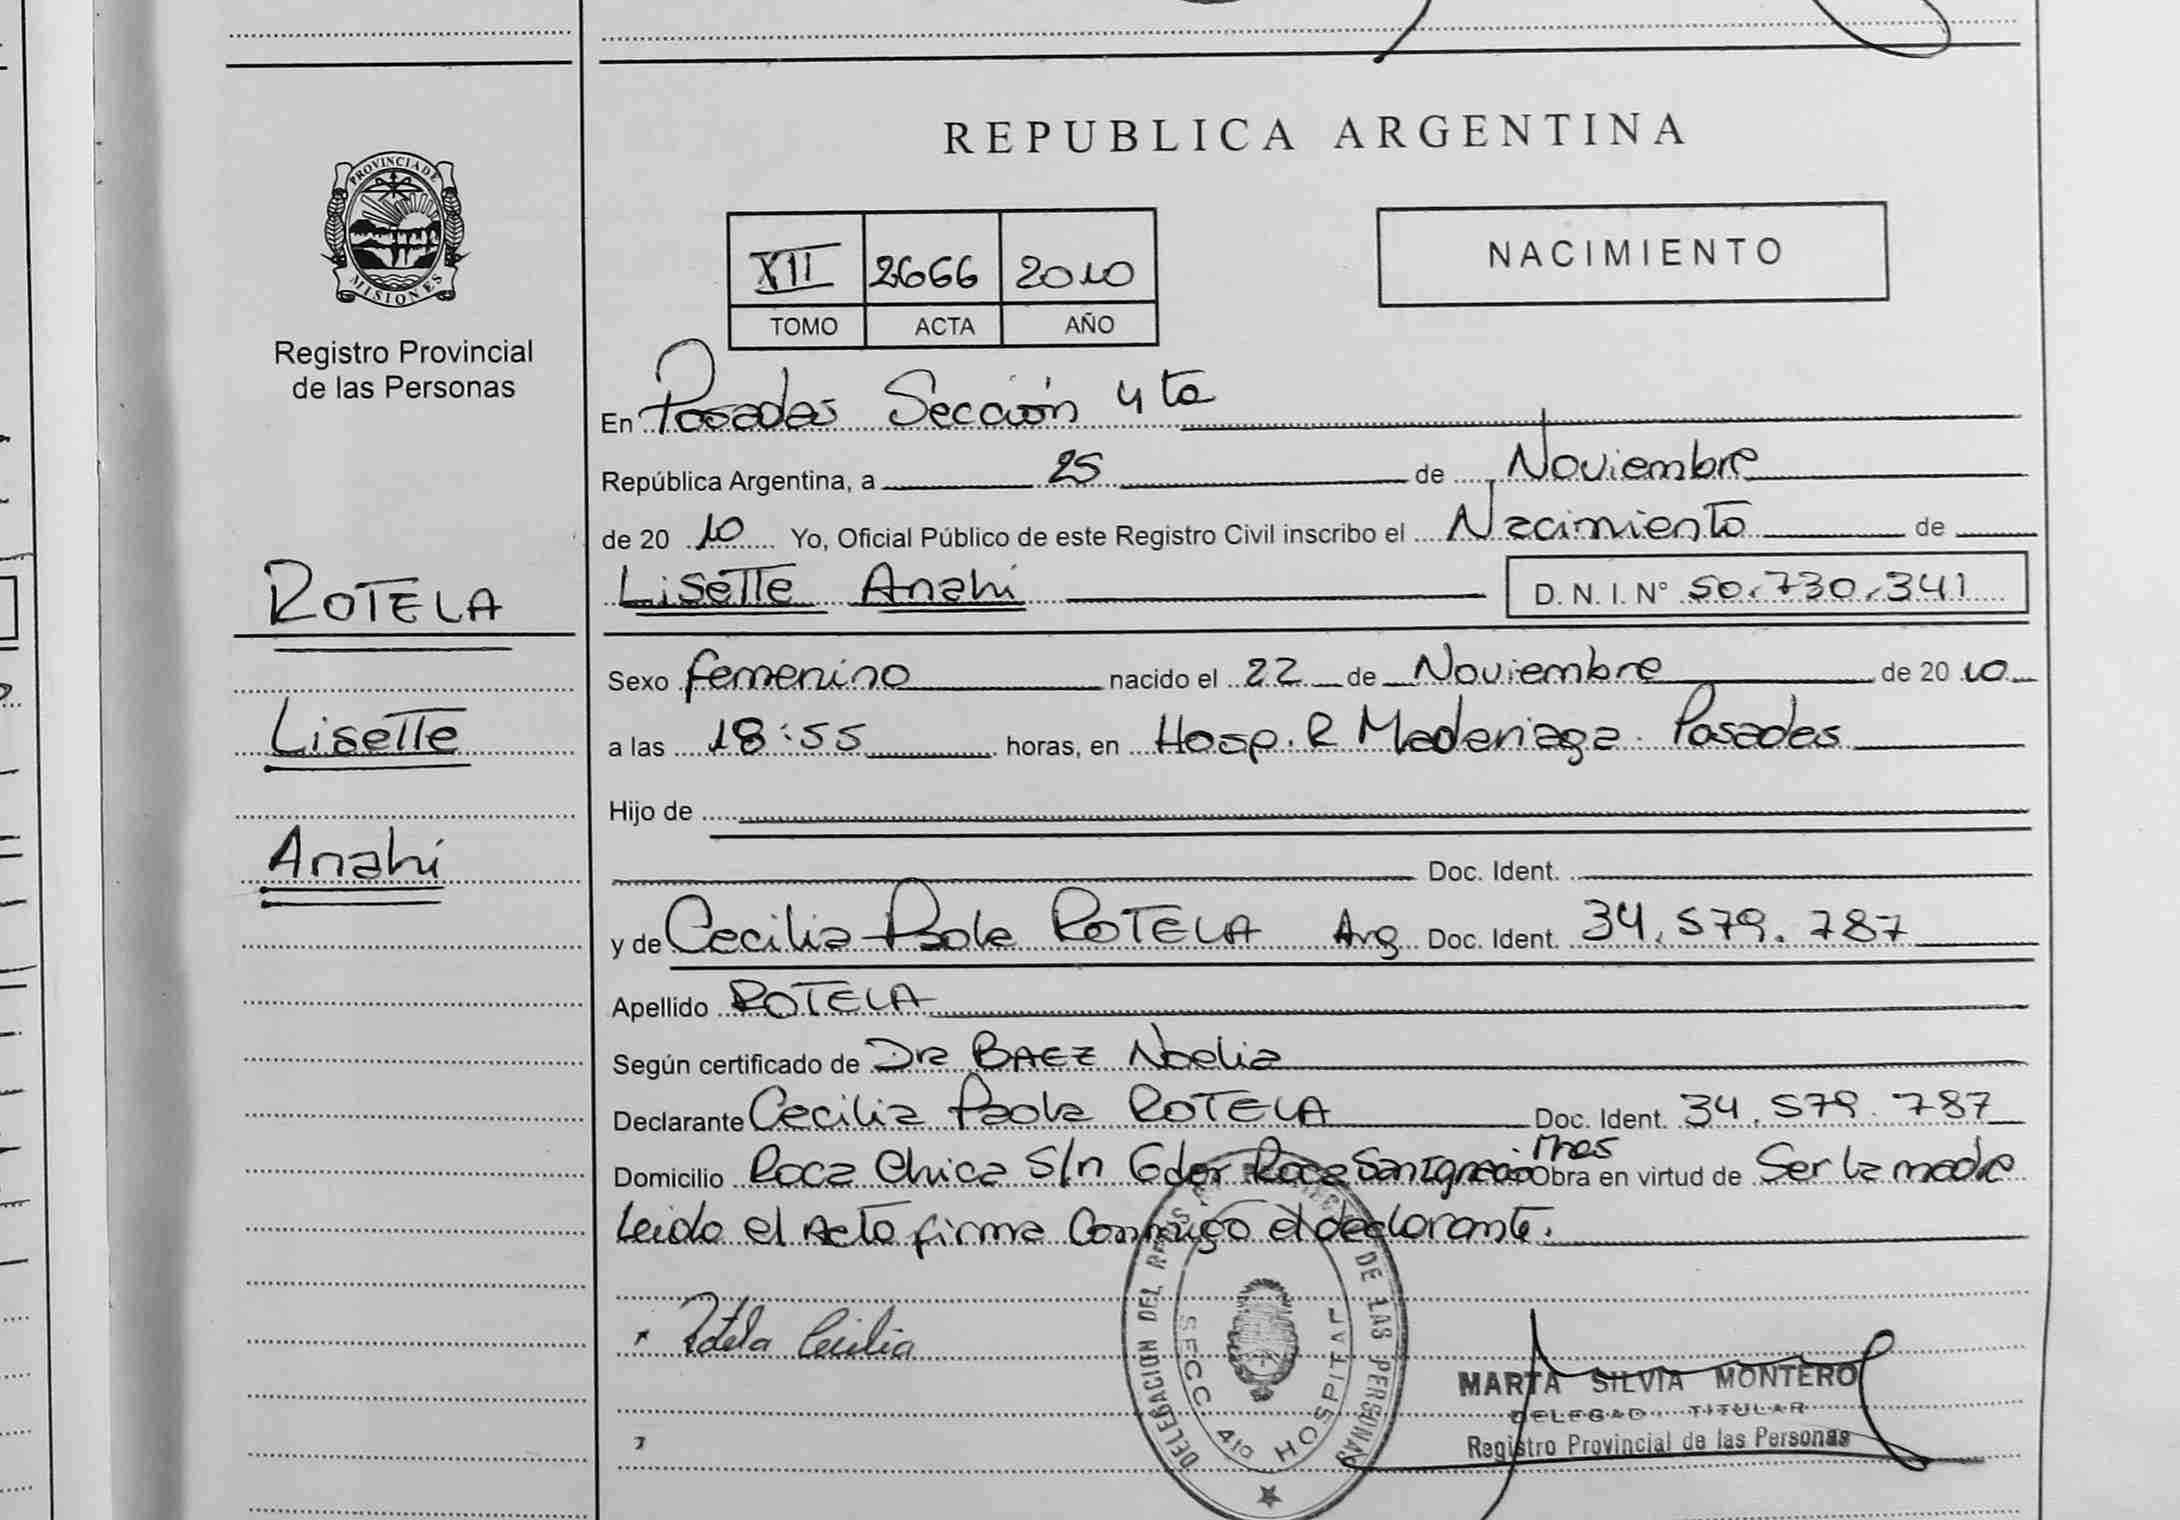 PROVINCIA DE
MISIONES
Registro Provincial
de las Personas
ROTELA
Lisette
Anahi
REPUBLICA ARGENTINA
XII 2666 2010
TOMO ACTA AÑO
NACIMIENTO
En Posadas Sección 4ta
República Argentina, a 25 de Noviembre
de 20 10 Yo, Oficial Público de este Registro Civil inscribo el Nacimiento de
Lisette Anahi D. N. I. N° 50.730.341
Sexo femenino nacido el 22 de Noviembre de 20 10
a las 18:55 horas, en Hosp. R Madariaga. Posadas
Hijo de
Doc. Ident.
y de Cecilia Paola ROTELA Arg Doc. Ident. 34.579.787
Apellido ROTELA
Según certificado de Dra BAEZ Noelia
Declarante Cecilia Paola ROTELA Doc. Ident. 34.579.787
Domicilio Roca Chica S/n Gdor Roca San Ignacio Mnes Obra en virtud de Ser la madre
Leido el Acto firma Conmigo el declarante.
Rotela Cecilia
DELEGACION DEL DE LAS PERSONAS
SECC 4ta HOSPITAL
MARTA SILVIA MONTERO
DELEGAD TITULAR
Registro Provincial de las Personas